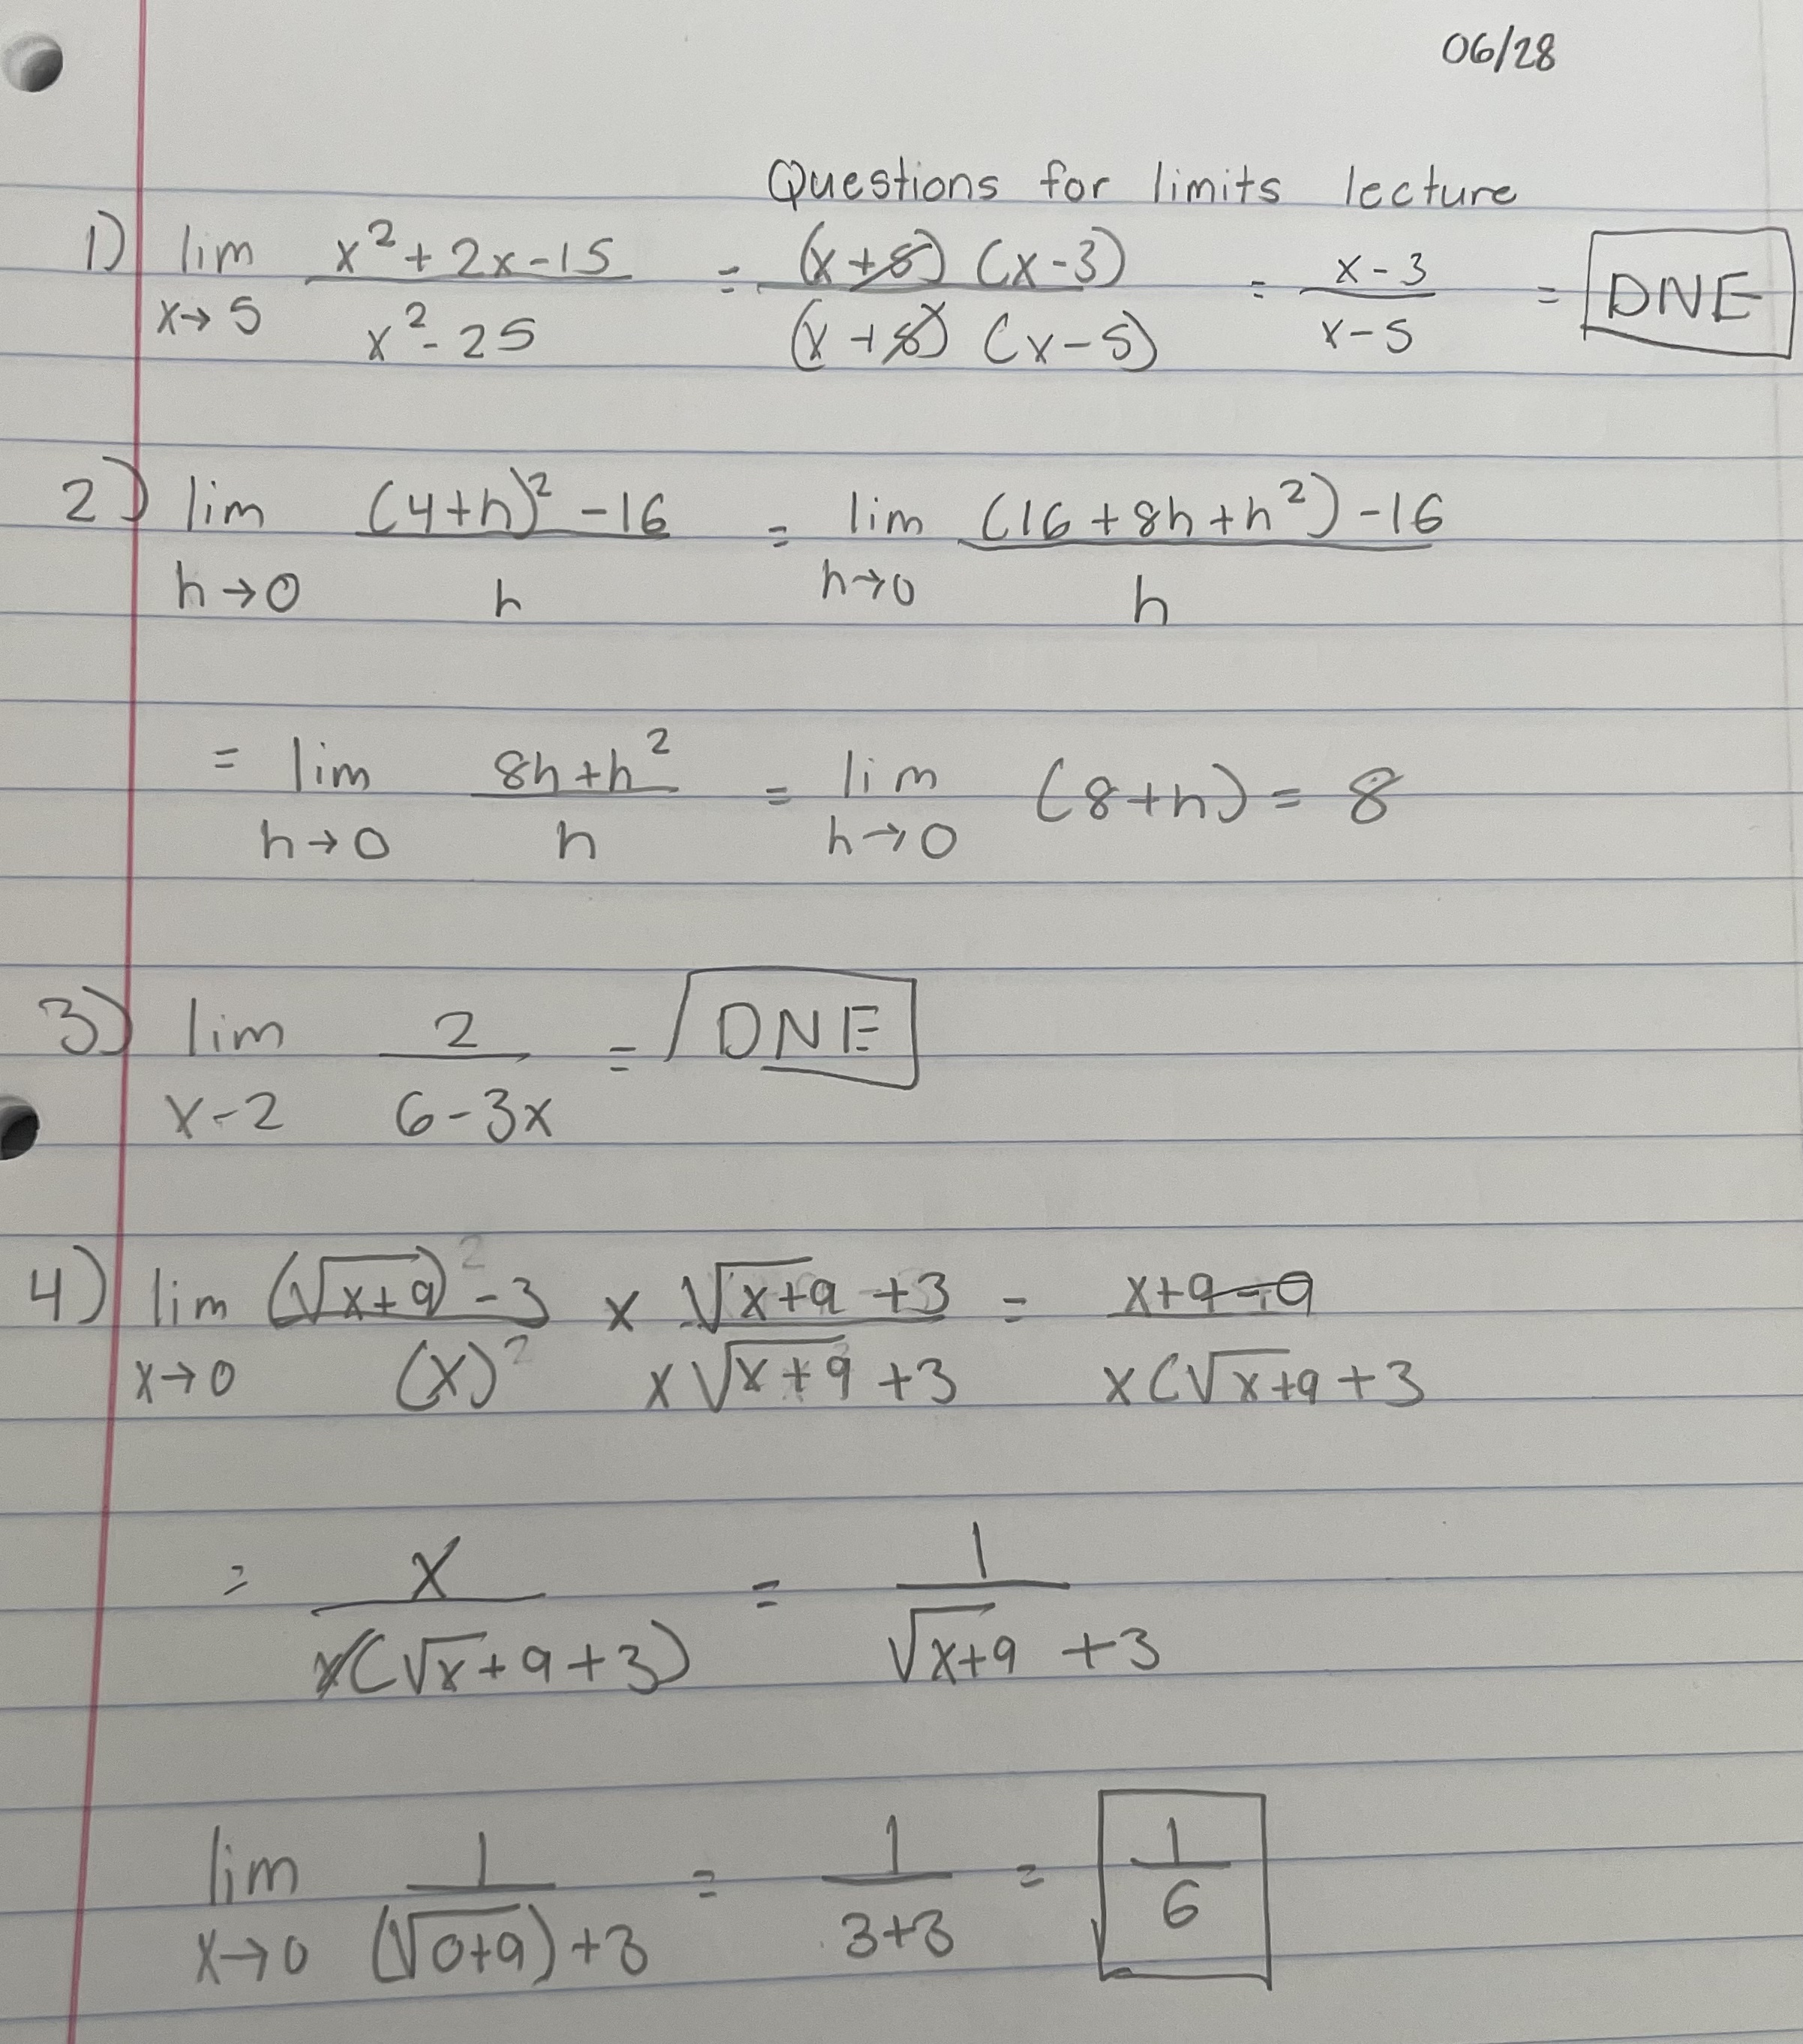 06/28
Questions for limits lecture
1) lim x→5 (x²+2x-15)/(x²-25) = (x+5)(x-3)/(x+5)(x-5) = (x-3)/(x-5) = DNE
2) lim h→0 ((4+h)²-16)/h = lim h→0 ((16+8h+h²)-16)/h
= lim h→0 (8h+h²)/h = lim h→0 (8+h) = 8
3) lim x-2 2/(6-3x) = DNE
4) lim x→0 ((√(x+9))²-3)/(x)² × (√(x+9)+3)/(x√(x+9)+3) = (x+9-9)/(x(√x+9+3)
= x/(x(√x+9+3)) = 1/(√(x+9)+3)
lim x→0 1/((√(0+9))+3) = 1/(3+3) = 1/6